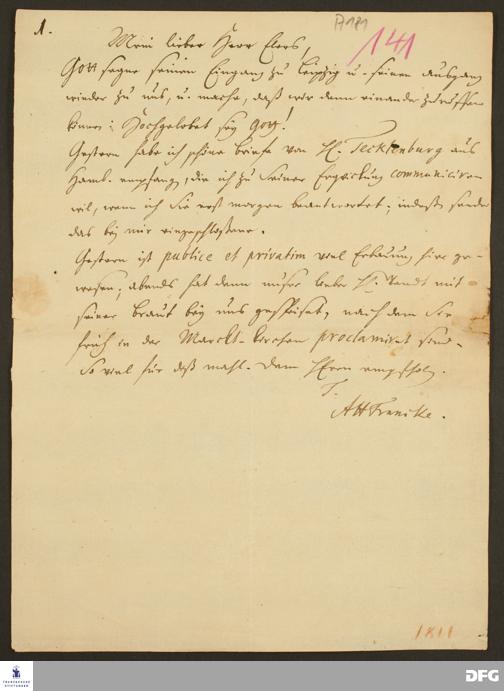 1.
A 181
141
Mein lieber Herr Elers,
Gott segne seinen Eingang zu Leipzig u. seinen Ausgang
wieder zu uns, u. mache, daß wir denn einander zuruffen
können: Hochgelobet sey Gott!
Gestern habe ich schöne briefe von H. Tecklenburg aus
Hamb. empfangen, die ich zu seiner Erquickung communiciren
wil, wenn ich sie erst morgen beantwortet; indeß sende
das bey mir eingeschloßene.
Gestern ist publice et privatim viel Erbauung hier ge-
wesen; abends hat denn unser lieber H. mit
seiner Braut bey uns gespeiset, nach dem sie
früh in der Marckt-Kirchen proclamiret sind.
So viel für diß mahl. Dem HErrn empfohlen.
T.
AHFrancke.
1811
FRANCKESCHE STIFTUNGEN
DFG